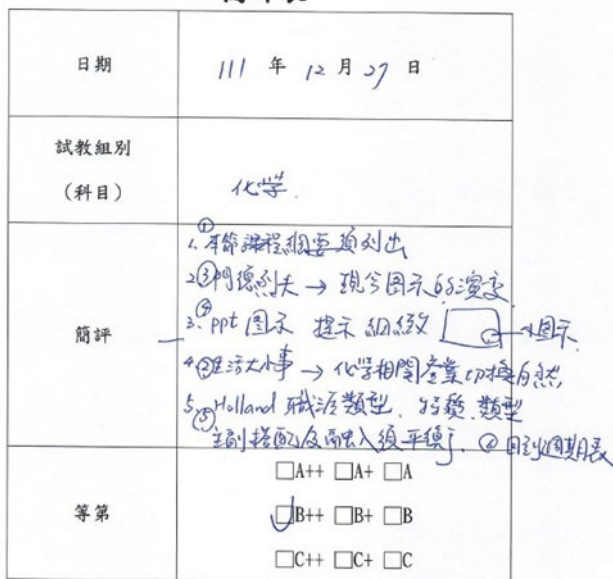 日期
111 年 12 月 27 日
試教組別
(科目)
化学.
簡評
1.① 本節課程綱要須列出
2.③ 門德列夫 → 現今图示的演变
3.④ ppt 图示 提示 細緻 小图示
4.② 生活大小事 → 化学相関産業切換自然
5.⑤ Holland 職涯類型、 類型
主副搭配及融入須平衡 ⑥ 回到週期表
等第
□A++ □A+ □A
□B++ □B+ □B
□C++ □C+ □C